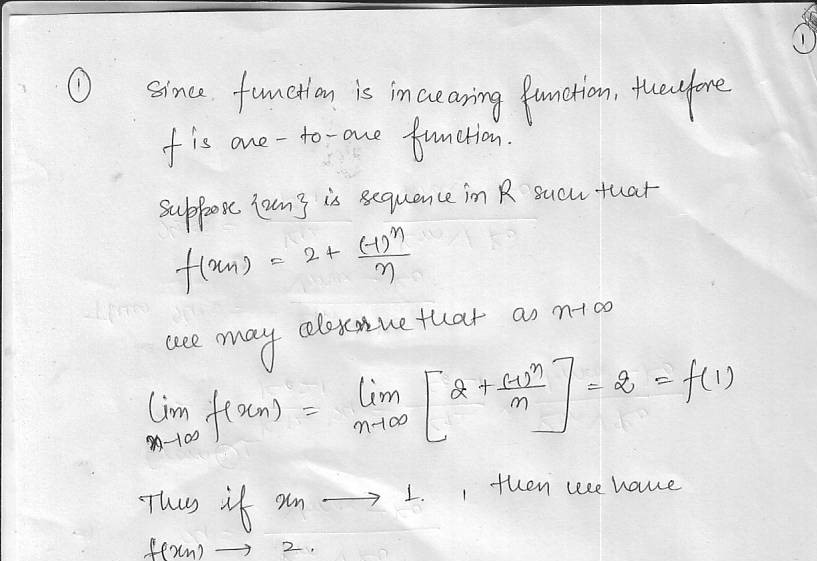 1
① Since function is increasing function, therefore
f is one-to-one function.
Suppose {xn} is sequence in R such that
f(xn) = 2 + (-1)^n / n
we may observe that as n→∞
lim n→∞ f(xn) = lim n→∞ [2 + (-1)^n / n] = 2 = f(1)
Thus if xn → 1. , then we have
f(xn) → 2.